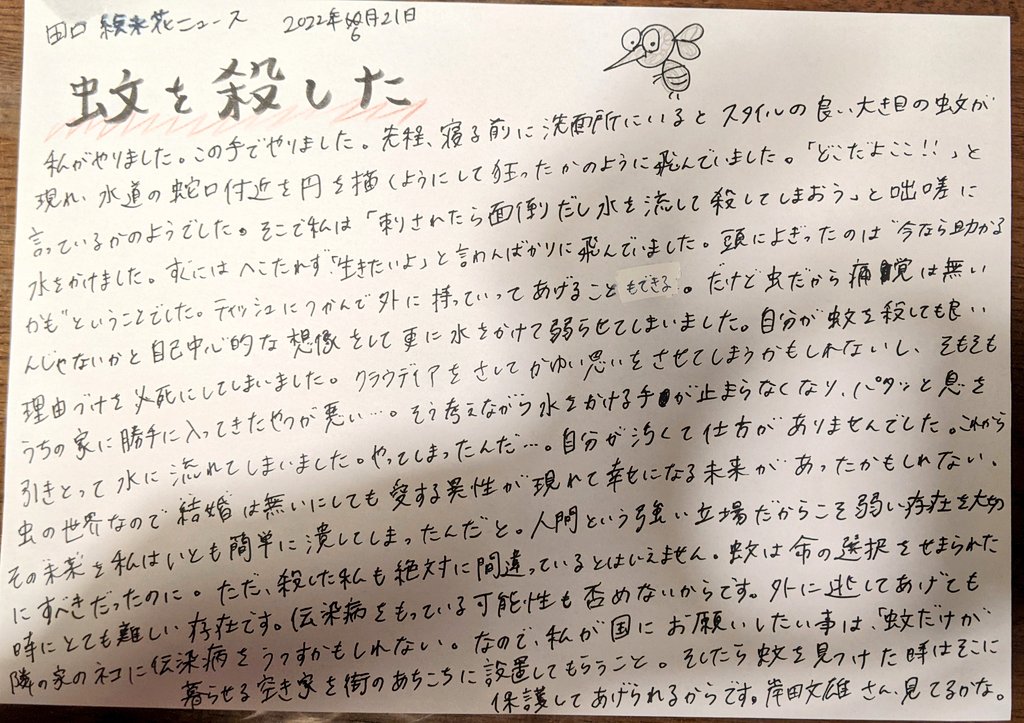 田口 絵未花ニュース 2022年6月21日
虫文を殺した
私がやりました。この手でやりました。先程、寝る前に洗面所にいるとスタイルの良い大き目の虫文が
現れ、水道の蛇口付近を円を描くようにして狂ったかのように飛んでいました。「どこだよここ!!」と
言っているかのようでした。そこで私は「刺されたら面倒だし水を流して殺してしまおう」と咄嗟に
水をかけました。すぐにはへこたれず「生きたいよ」と言わんばかりに飛んでいました。頭によぎったのは“今なら助かる
かも”ということでした。ティッシュにつかんで外に持っていってあげることもできる。だけど虫だから痛覚は無い
んじゃないかと自己中心的な想像をして更に水をかけて弱らせてしまいました。自分が蚊を殺しても良い
理由づけを必死にしてしまいました。クラウディアをさしてかゆい思いをさせてしまうかもしれないし、そもそも
うちの家に勝手に入ってきたやつが悪い…。そう考えながら水をかける手が止まらなくなり、パタッと息を
引きとって水に流れてしまいました。やってしまったんだ…。自分が汚くて仕方がありませんでした。これから
虫の世界なので結婚は無いにしても愛する異性が現れて幸せになる未来があったかもしれない、
その未来を私はいとも簡単に潰してしまったんだと。人間という強い立場だからこそ弱い存在を大切
にすべきだったのに。ただ、殺した私も絶対に間違っているとはいえません。蚊は命の選択をせまられた
時にとても難しい存在です。伝染病をもっている可能性も否めないからです。外に逃してあげても
隣の家のネコに伝染病をうつすかもしれない。なので、私が国にお願いしたい事は、「蚊だけが
暮らせる空き家を街のあちこちに設置してもらうこと。そしたら蚊を見つけた時はそこに
保護してあげられるからです。岸田文雄さん、見てるかな。